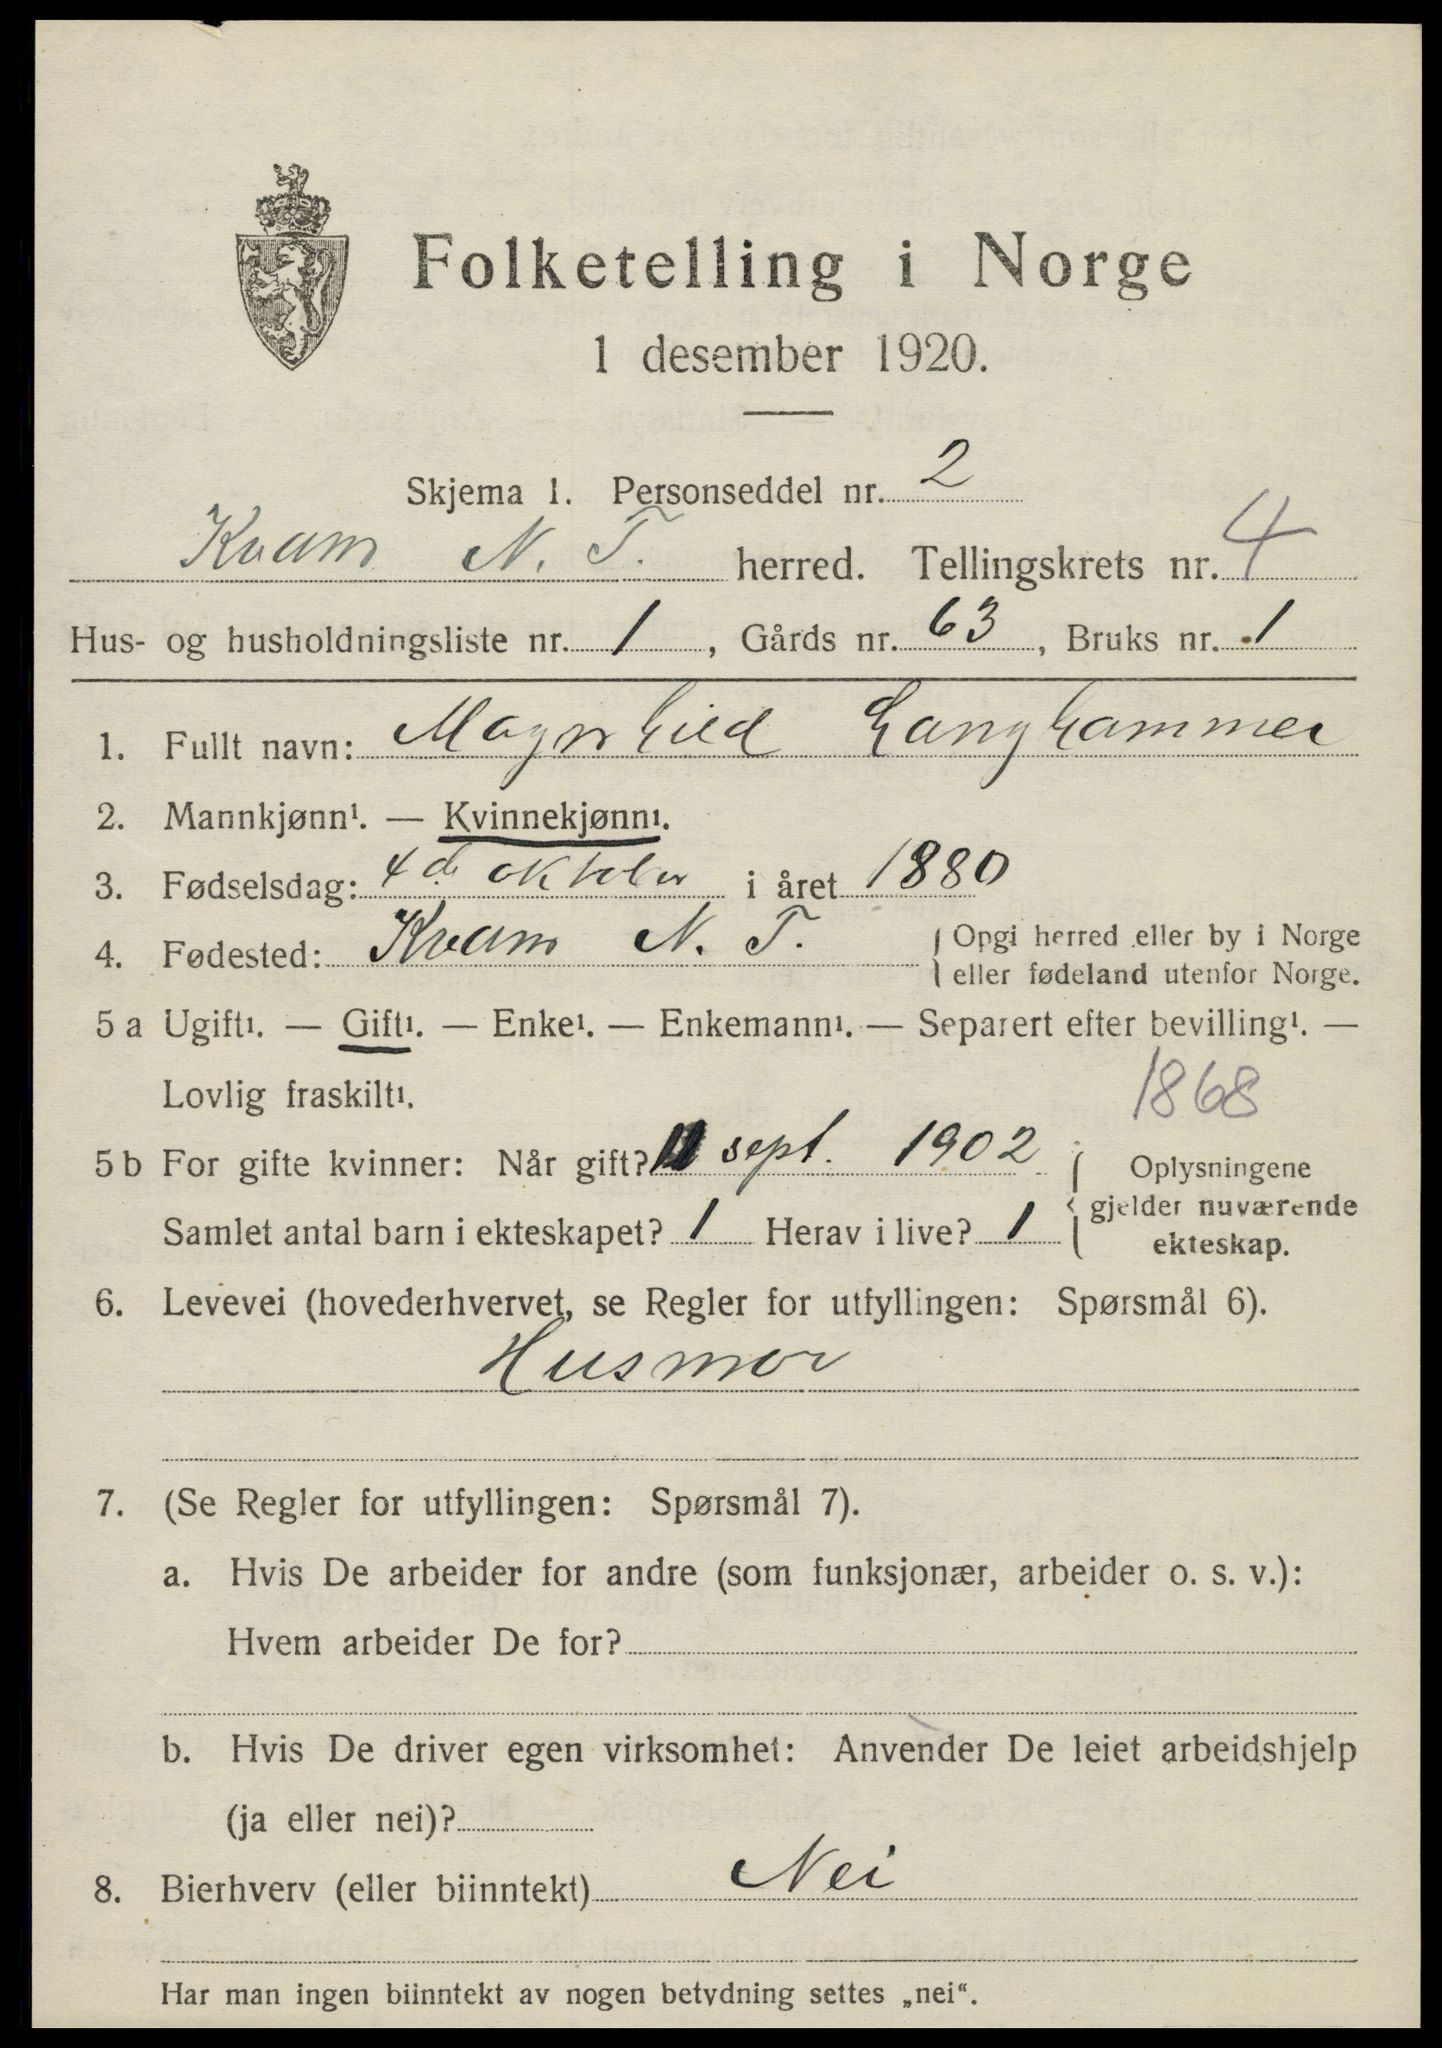 Folketelling i Norge
1 desember 1920.
Skjema 1. Personseddel nr. 2
Kvam N. T. herred. Tellingskrets nr. 4
Hus- og husholdningsliste nr. 1, Gårds nr. 63, Bruks nr. 1
1. Fullt navn: Magnhild Langhammer
2. Mannkjønn¹. — Kvinnekjønn¹.
3. Fødselsdag: 4de oktober i året 1880
4. Fødested: Kvam N. T. { Opgi herred eller by i Norge
eller fødeland utenfor Norge.
5 a Ugift¹. — Gift¹. — Enke¹. — Enkemann¹. — Separert efter bevilling¹. —
Lovlig fraskilt¹.
1868
5 b For gifte kvinner: Når gift? sept. 1902 { Oplysningene
gjelder nuværende
ekteskap.
Samlet antal barn i ekteskapet? 1 Herav i live? 1
6. Levevei (hovederhvervet, se Regler for utfyllingen: Spørsmål 6).
Husmor
7. (Se Regler for utfyllingen: Spørsmål 7).
a. Hvis De arbeider for andre (som funksjonær, arbeider o. s. v.):
Hvem arbeider De for?
b. Hvis De driver egen virksomhet: Anvender De leiet arbeidshjelp
(ja eller nei)?
8. Bierhverv (eller biinntekt) Nei
Har man ingen biinntekt av nogen betydning settes „nei“.